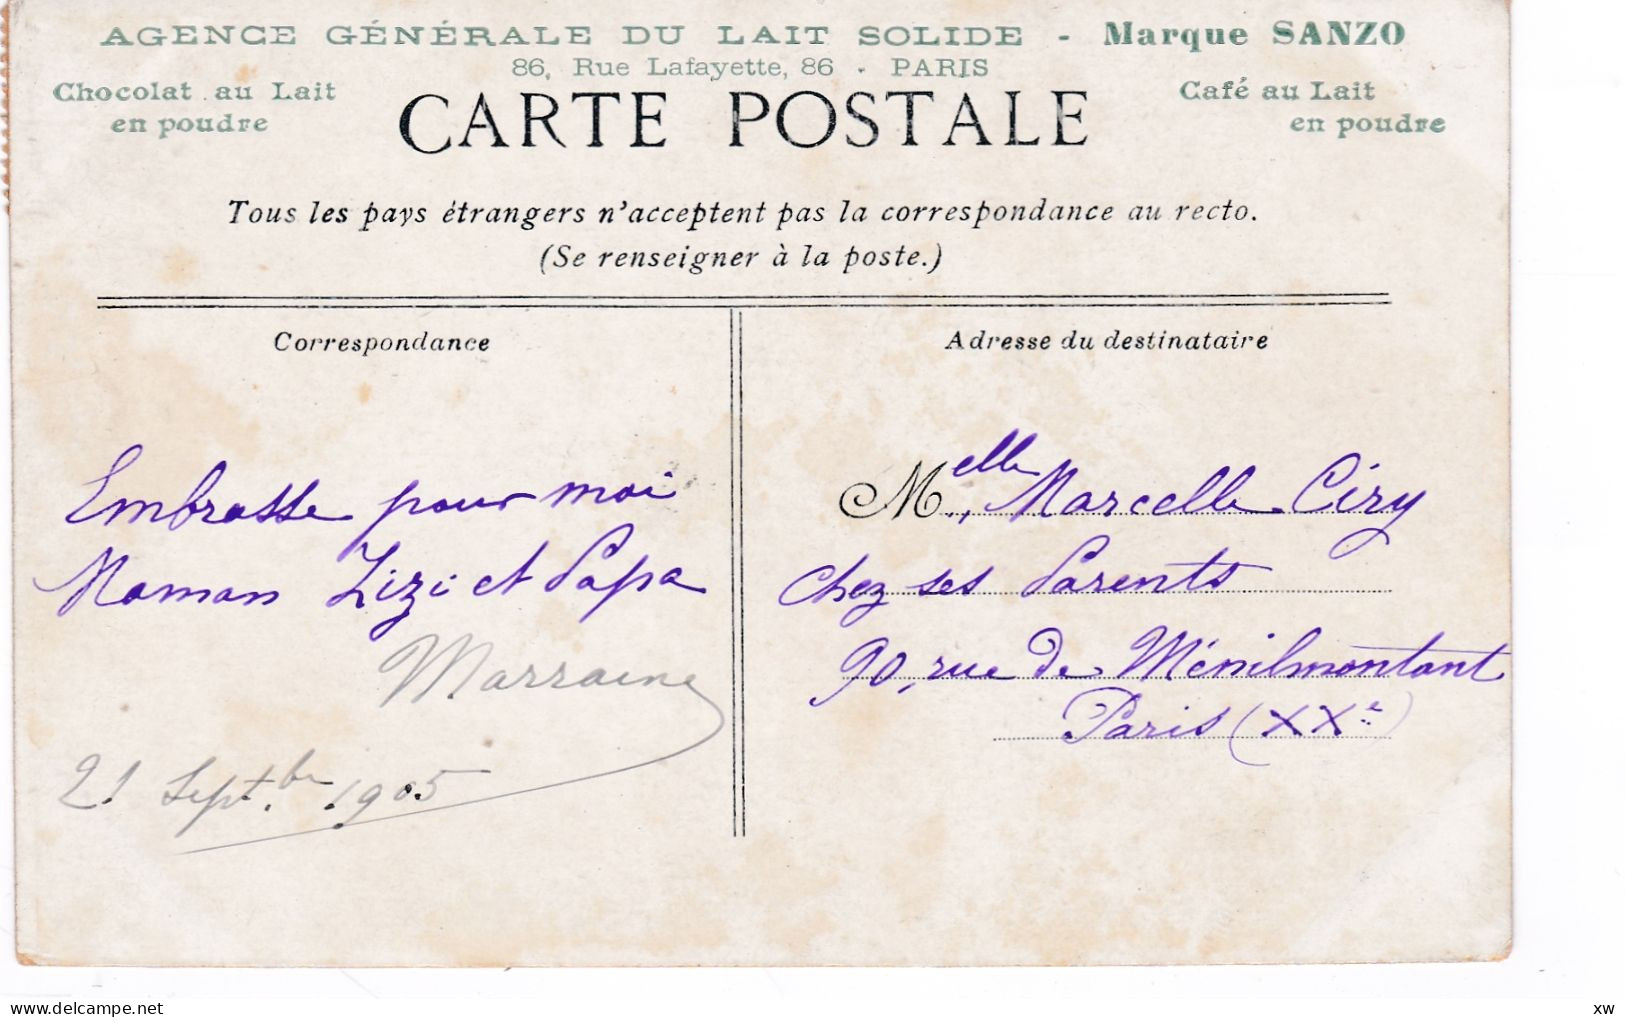 AGENCE GÉNÉRALE DU LAIT SOLIDE - Marque SANZO
86, Rue Lafayette, 86 - PARIS
Chocolat au Lait
en poudre
Café au Lait
en poudre
CARTE POSTALE
Tous les pays étrangers n'acceptent pas la correspondance au recto.
(Se renseigner à la poste.)
Correspondance
Embrasse pour moi
Maman Zizi et Papa
Marraine
21 Sept.bre 1905
Adresse du destinataire
Melle Marcelle Ciry
chez ses Parents
90, rue de Ménilmontant
Paris (XXe)
delcampe.net
xw